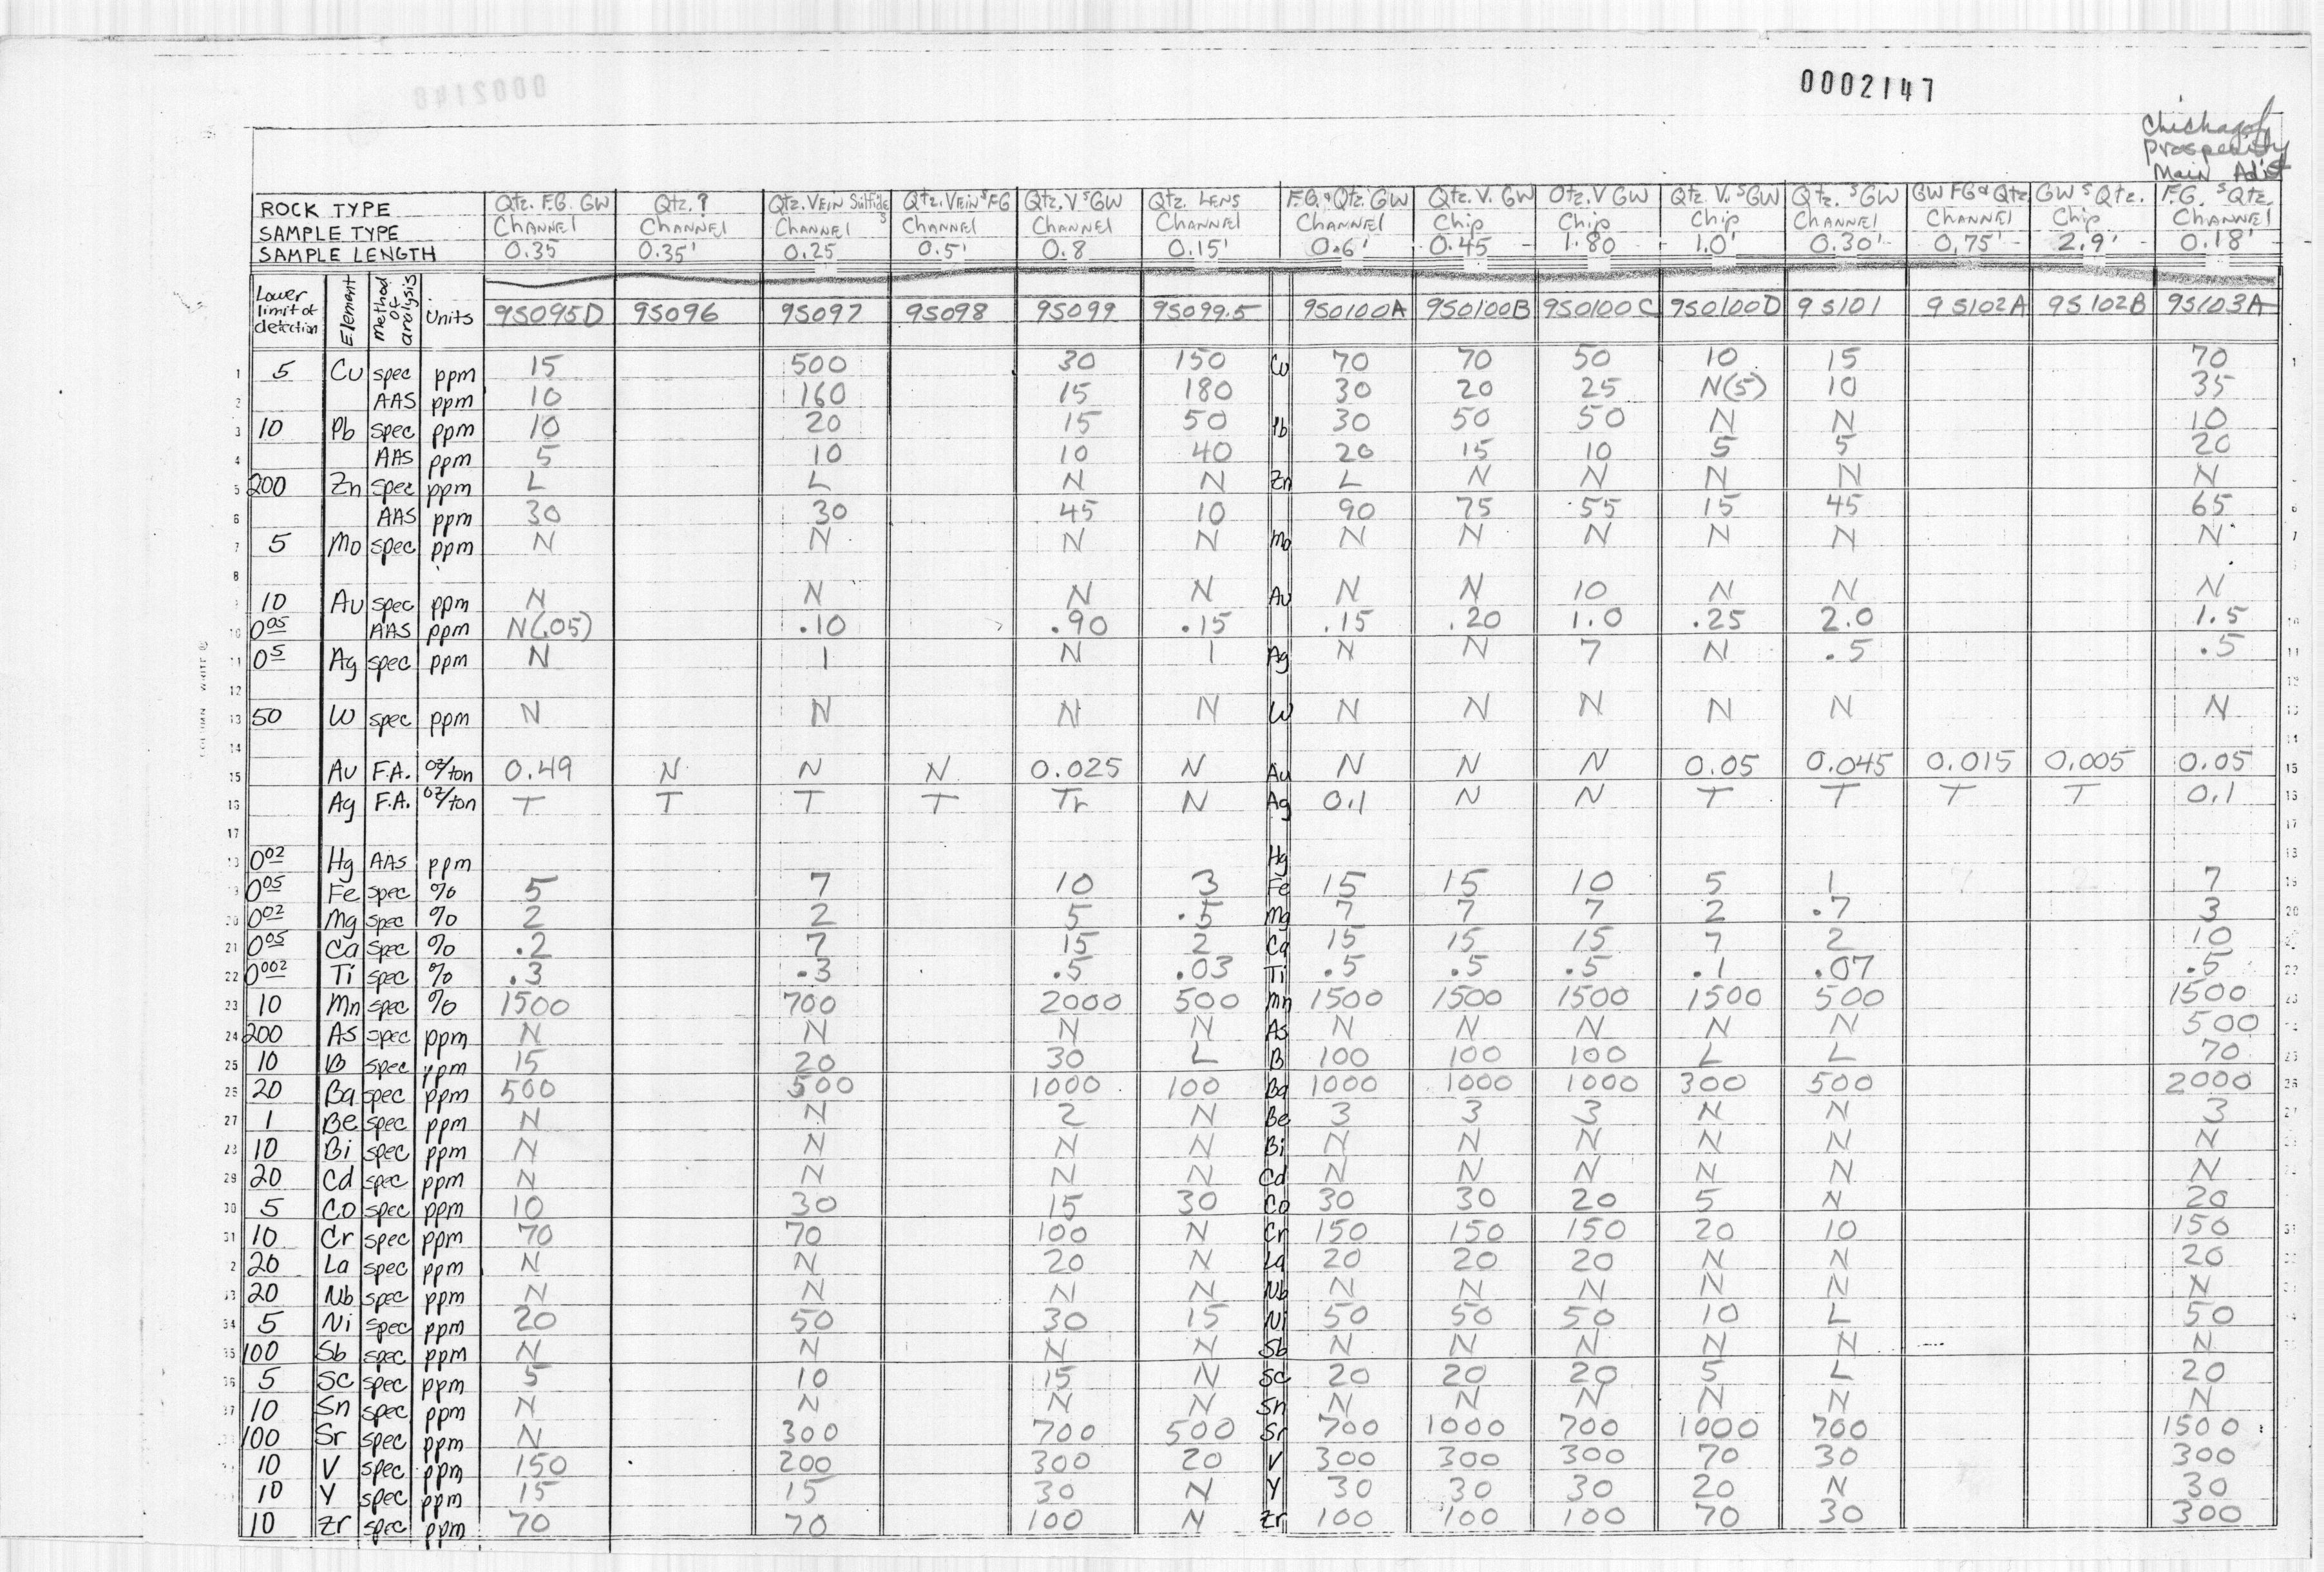 0002147
0002148
Chichagof
Prosperity
Main Adit
ROCK TYPE Qtz. F.G. GW Qtz. ? Qtz. VEIN Sulfides Qtz. VEIN S FG Qtz. V S GW Qtz LENS F.G. & Qtz. GW Qtz. V. GW Qtz. V GW Qtz. V. S GW Qtz. S GW GW FG & Qtz GW S Qtz. F.G. S Qtz.
SAMPLE TYPE CHANNEL CHANNEL CHANNEL CHANNEL CHANNEL CHANNEL CHANNEL Chip Chip Chip CHANNEL CHANNEL Chip CHANNEL
SAMPLE LENGTH 0.35 0.35' 0.25 0.5' 0.8 0.15' 0.6' 0.45 1.80 1.0' 0.30' 0.75' 2.9' 0.18'
Lower limit of detection Element Method of analysis Units 9S095D 9S096 9S097 9S098 9S099 9S099.5 9S0100A 9S0100B 9S0100C 9S0100D 9S101 9S102A 9S102B 9S103A
1 5 Cu spec ppm 15 500 30 150 Cu 70 70 50 10 15 70 1
2 AAS ppm 10 160 15 180 30 20 25 N(5) 10 35
3 10 Pb spec ppm 10 20 15 50 Pb 30 50 50 N N 10
4 AAS ppm 5 10 10 40 20 15 10 5 5 20
5 200 Zn spec ppm L L N N Zn L N N N N N
6 AAS ppm 30 30 45 10 90 75 55 15 45 65 6
7 5 Mo spec ppm N N N N Mo N N N N N N 7
8
9 10 Au spec ppm N N N N Au N N 10 N N N
10 0.05 AAS ppm N(.05) .10 .90 .15 .15 .20 1.0 .25 2.0 1.5 10
11 0.5 Ag spec ppm N 1 N 1 Ag N N 7 N .5 .5 11
12 12
13 50 W spec ppm N N N N W N N N N N N 13
14 14
15 Au F.A. oz/ton 0.49 N N N 0.025 N Au N N N 0.05 0.045 0.015 0.005 0.05 15
16 Ag F.A. oz/ton T T T T Tr N Ag 0.1 N N T T T T 0.1 16
17 17
18 0.02 Hg AAS ppm Hg 18
19 0.05 Fe spec % 5 7 10 3 Fe 15 15 10 5 1 7 19
20 0.02 Mg spec % 2 2 5 .5 Mg 7 7 7 2 .7 3 20
21 0.05 Ca spec % .2 7 15 2 Ca 15 15 15 7 2 10
22 0.002 Ti spec % .3 .3 .5 .03 Ti .5 .5 .5 .1 .07 .5 22
23 10 Mn spec % 1500 700 2000 500 Mn 1500 1500 1500 1500 500 1500 23
24 200 As spec ppm N N N N As N N N N N 500
25 10 B spec ppm 15 20 30 L B 100 100 100 L L 70 25
26 20 Ba spec ppm 500 500 1000 100 Ba 1000 1000 1000 300 500 2000 26
27 1 Be spec ppm N N 2 N Be 3 3 3 N N 3 27
28 10 Bi spec ppm N N N N Bi N N N N N N
29 20 Cd spec ppm N N N N Cd N N N N N N
30 5 Co spec ppm 10 30 15 30 Co 30 30 20 5 N 20
31 10 Cr spec ppm 70 70 100 N Cr 150 150 150 20 10 150 31
2 20 La spec ppm N N 20 N La 20 20 20 N N 20
33 20 Nb spec ppm N N N N Nb N N N N N N
34 5 Ni spec ppm 20 50 30 15 Ni 50 50 50 10 L 50
35 100 Sb spec ppm N N N N Sb N N N N N N
36 5 Sc spec ppm 5 10 15 N Sc 20 20 20 5 L 20
37 10 Sn spec ppm N N N N Sn N N N N N N
100 Sr spec ppm N 300 700 500 Sr 700 1000 700 1000 700 1500
10 V spec ppm 150 200 300 20 V 300 300 300 70 30 300
10 Y spec ppm 15 15 30 N Y 30 30 30 20 N 30
10 Zr spec ppm 70 70 100 N Zr 100 100 100 70 30 300